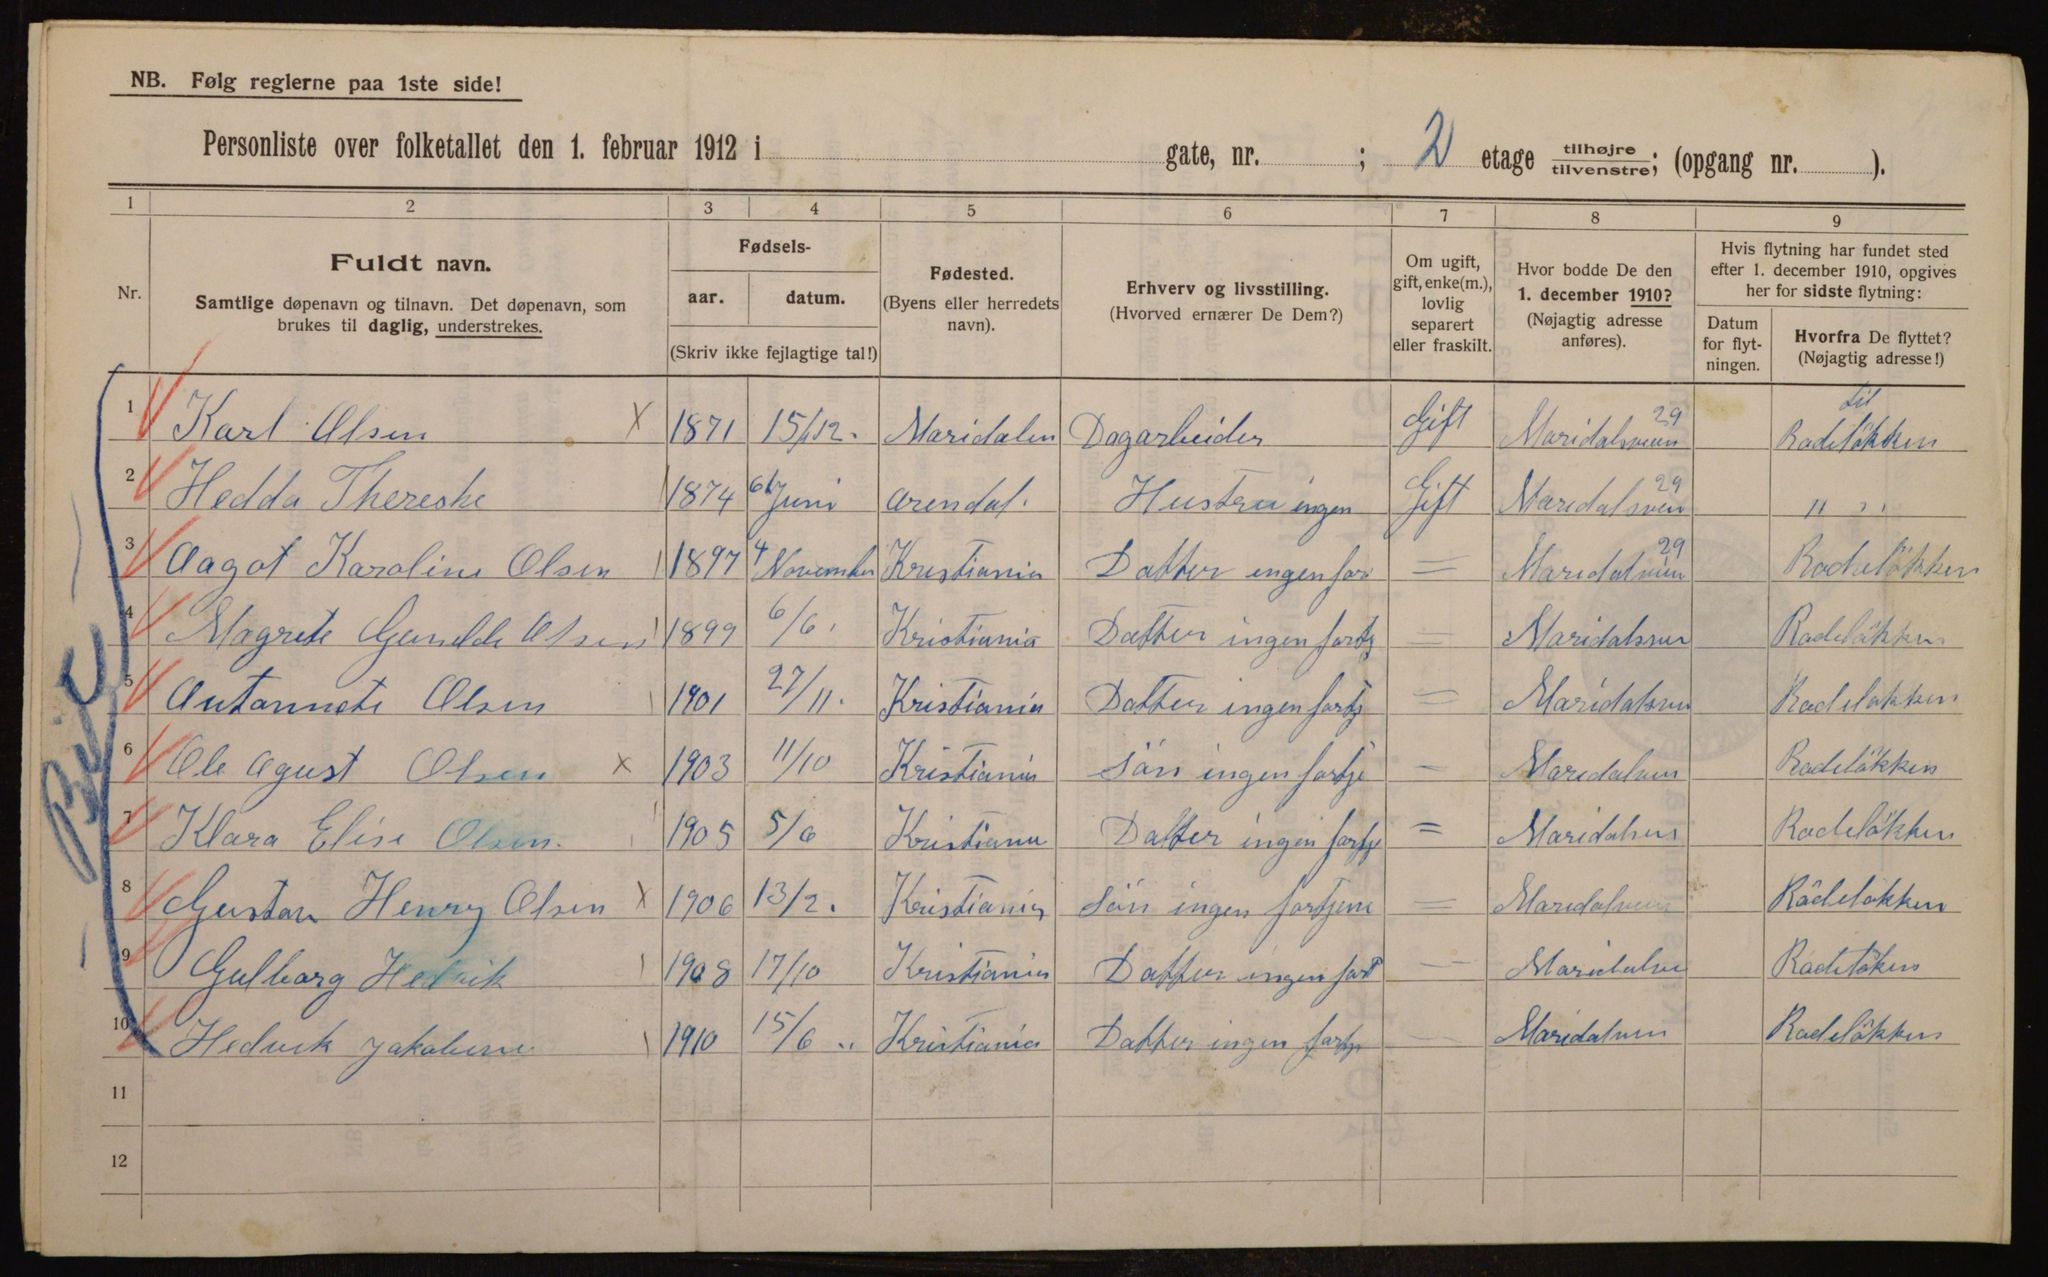 NB. Følg reglerne paa 1ste side!
Personliste over folketallet den 1. februar 1912 i gate, nr. ; 2 etage tilhøjre/tilvenstre; (opgang nr. ).
1 2 3 4 5 6 7 8 9
Nr.
Fuldt navn.
Samtlige døpenavn og tilnavn. Det døpenavn, som
brukes til daglig, understrekes.
Fødsels-
aar. datum.
(Skriv ikke fejlagtige tal!)
Fødested.
(Byens eller herredets
navn).
Erhverv og livsstilling.
(Hvorved ernærer De Dem?)
Om ugift,
gift, enke(m.),
lovlig
separert
eller fraskilt.
Hvor bodde De den
1. december 1910?
(Nøjagtig adresse
anføres).
Hvis flytning har fundet sted
efter 1. december 1910, opgives
her for sidste flytning:
Datum
for flyt-
ningen.
Hvorfra De flyttet?
(Nøjagtig adresse!)
1 Karl Olsen X 1871 15/12. Maridalen Dagarbeider Gift Maridalsveien 29 til Rodeløkken
2 Hedda Thereske 1874 6 Juni Arendal. Hustru ingen Gift Maridalsvein 29 " "
3 Aagot Karoline Olsen 1897 4 November Kristiania Datter ingen for = Maridalsveien 29 Rodeløkken
4 Magrete Gunelde Olsen 1899 6/6. Kristiania Datter ingen fortj = Maridalsvei Rodeløkken
5 Antonnete Olsen 1901 27/11. Kristiania Datter ingen fortj = Maridalsvei Rodeløkken
6 Ole Agust Olsen X 1903 11/10 Kristiania Sön ingen fortje — Maridalvein Rodeløkken
7 Klara Elise Olsen. 1905 5/6 Kristiania Datter ingen fortje = Maridalvei Rodeløkken
8 Gustav Henry Olsen X 1906 13/2. Kristiania Sön ingen fortjene = Maridalveien Rådeløkken
9 Gulborg Hedvik 1908 17/10 Kristiania Datter ingen fort — Maridalve Rodeløken
10 Hedvik Jakobine 1910 15/6 Kristiania Datter ingen fortje — Maridalvein Rodeløkken
11
12